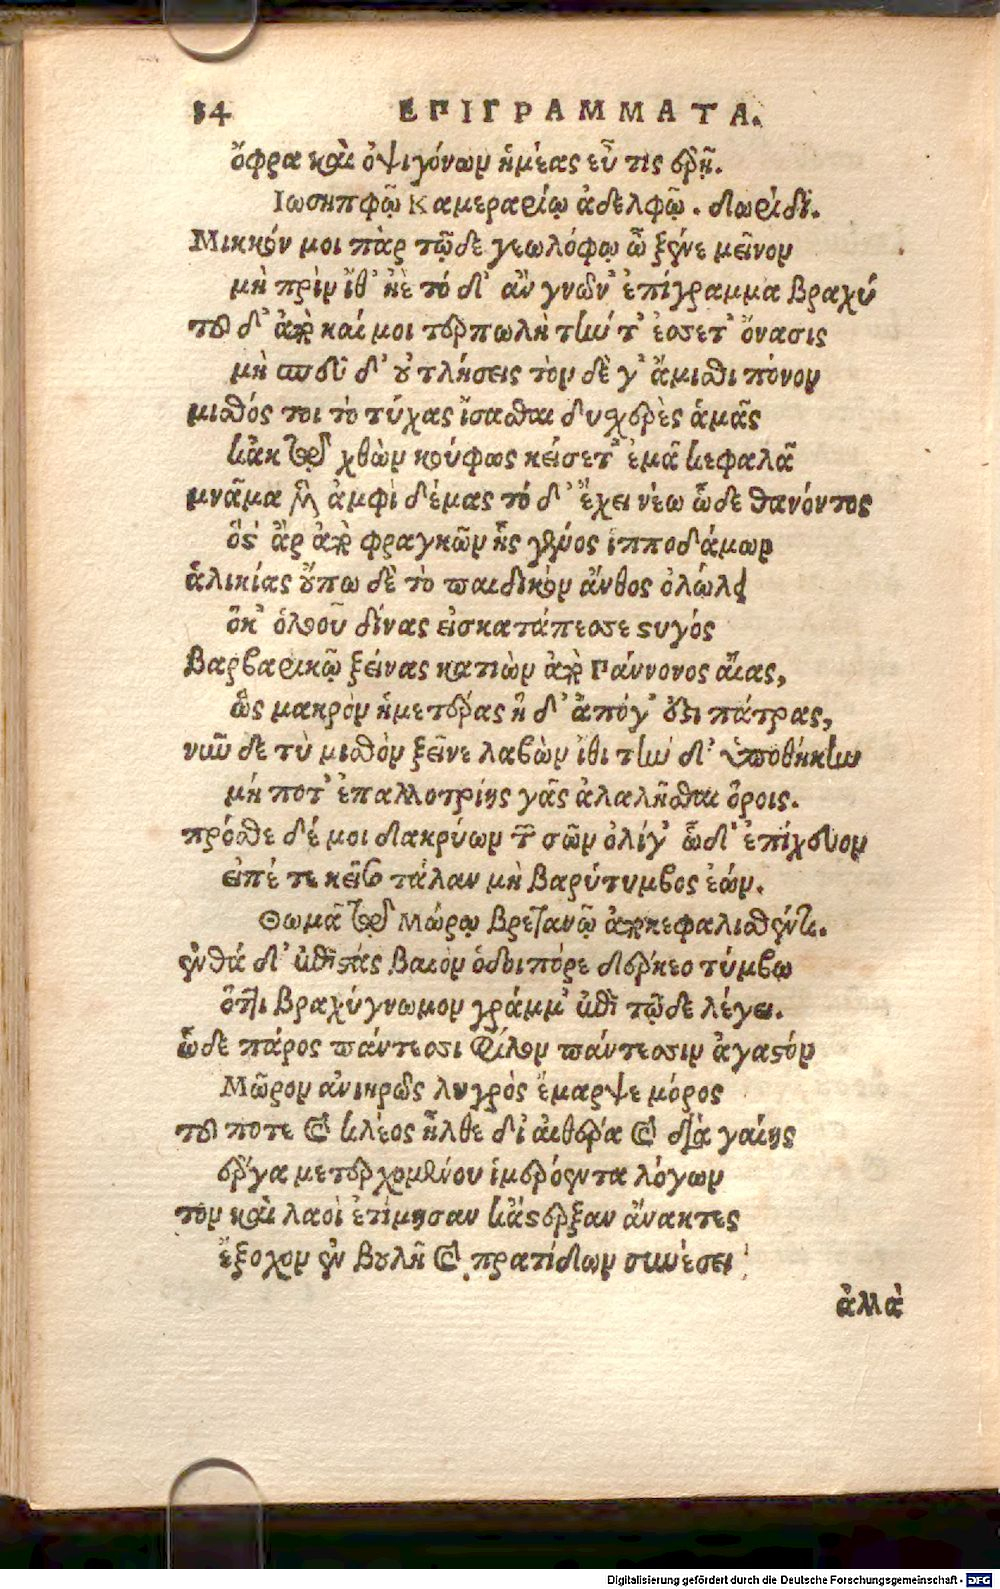 84 ΕΠΙΓΡΑΜΜΑΤΑ.
ὄφρα καὶ ὀψιγόνων ἡμέας εὖ τις ἐρῇ.
Ιωσηπφῷ Καμεραρίῳ ἀδελφῷ. δωρίδι.
Μικκόν μοι πὰρ τῷδε γεωλόφῳ ὦ ξένε μεῖνον
μὴ πρὶν ἴθ' ἠὲ τό δ' ἂν γνῶν' ἐπίγραμμα βραχύ
του δ' ἄρα καί μοι τερπωλὴ τὴν τ' ἔσσετ' ὄνασις
μὴ σπεῦ δ' οὐ τλήσεις τὸν δὲ γ' ἄμισθι πόνον
μισθός τοι τὸ τύχας ἴσασθαι δυσχερὲς ἁμᾶς
κἀκ τούτου χθὼν κούφως κείσετ' ἐμᾷ κεφαλᾷ
μνᾶμα μὲν ἀμφὶ δέμας τό δ' ἔχει νέω ὧδε θανόντος
ὅς ἄρ ἀπὸ φραγκῶν ἦς γένος ἱπποδάμων
ἁλικίας οὔπω δὲ τὸ παιδικὸν ἄνθος ὀλώλει
ὅκ' ὀλοοῦ δίνας εἰσκατάπεσσε στυγός
Βαρβαρικῷ ξείνας κατιὼν ἀπὸ Γάννονος αἴας,
ὣς μακρὸν ἡμετέρας ἢ δ' ἀπόγ' ἐστι πάτρας,
νῦν δε τὺ μισθὸν ξεῖνε λαβὼν ἴθι τὴν δ' ὑποθήκην
μή ποτ' ἐπαλλοτρίης γᾶς ἀλαλῆσθαι ὅροις.
πρόσθε δέ μοι δακρύων τῶν σῶν ὀλίγ' ὧδ' ἐπίχευον
εἰπέ τε κεῖσο τάλαν μὴ βαρύτυμβος ἐών.
Θωμᾷ τῷ Μώρῳ βρεττανῷ ἀποκεφαλισθέντι.
ἐνθά δ' ἐπιστὰς βαιὸν ὁδοιπόρε δέρκεο τύμβῳ
ὅττι βραχύγνωμον γράμμ' ἐπὶ τῷδε λέγει.
ὧδε πάρος πάντεσσι φίλον πάντεσσιν ἀγαστόν
Μῶρον ἀνιηρῶς λυγρὸς ἔμαρψε μόρος
του ποτε καὶ κλέος ἦλθε δι' αἰθέρα καὶ διὰ γαίης
ἔργα μετερχομένου ἱμερόεντα λόγων
τὸν καὶ λαοὶ ἐτίμησαν κἄστερξαν ἄνακτες
ἔξοχον ἐν βουλῇ καὶ πραπίδων συνέσει
ἀλλὰ
Digitalisierung gefördert durch die Deutsche Forschungsgemeinschaft - DFG